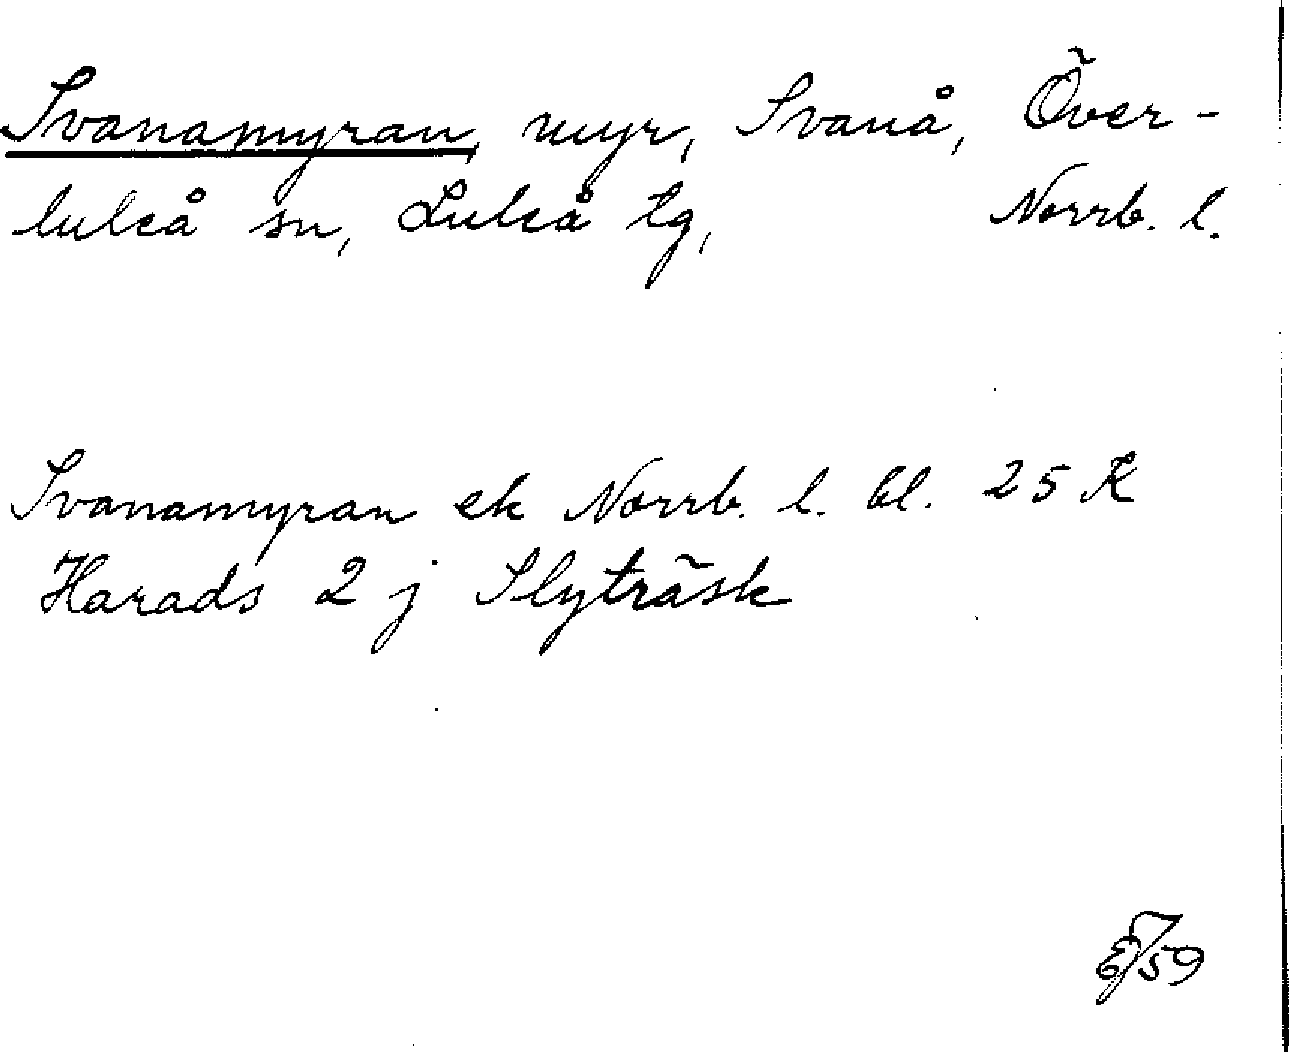 Svanamyran, myr, Svanå, Över-
luleå sn, Luleå tg, Norrb. l.
Svanamyran ek Norrb. l. bl. 25 K
Harads 2 j Slyträsk
/59